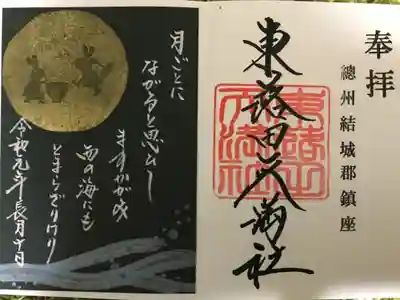 奉拝
總州結城郡鎮座
東蕗田天満社
東蕗田
天満社
月ごとに
ながると思ひし
ますかがみ
西の海にも
とまらざりけり
令和元年長月十日